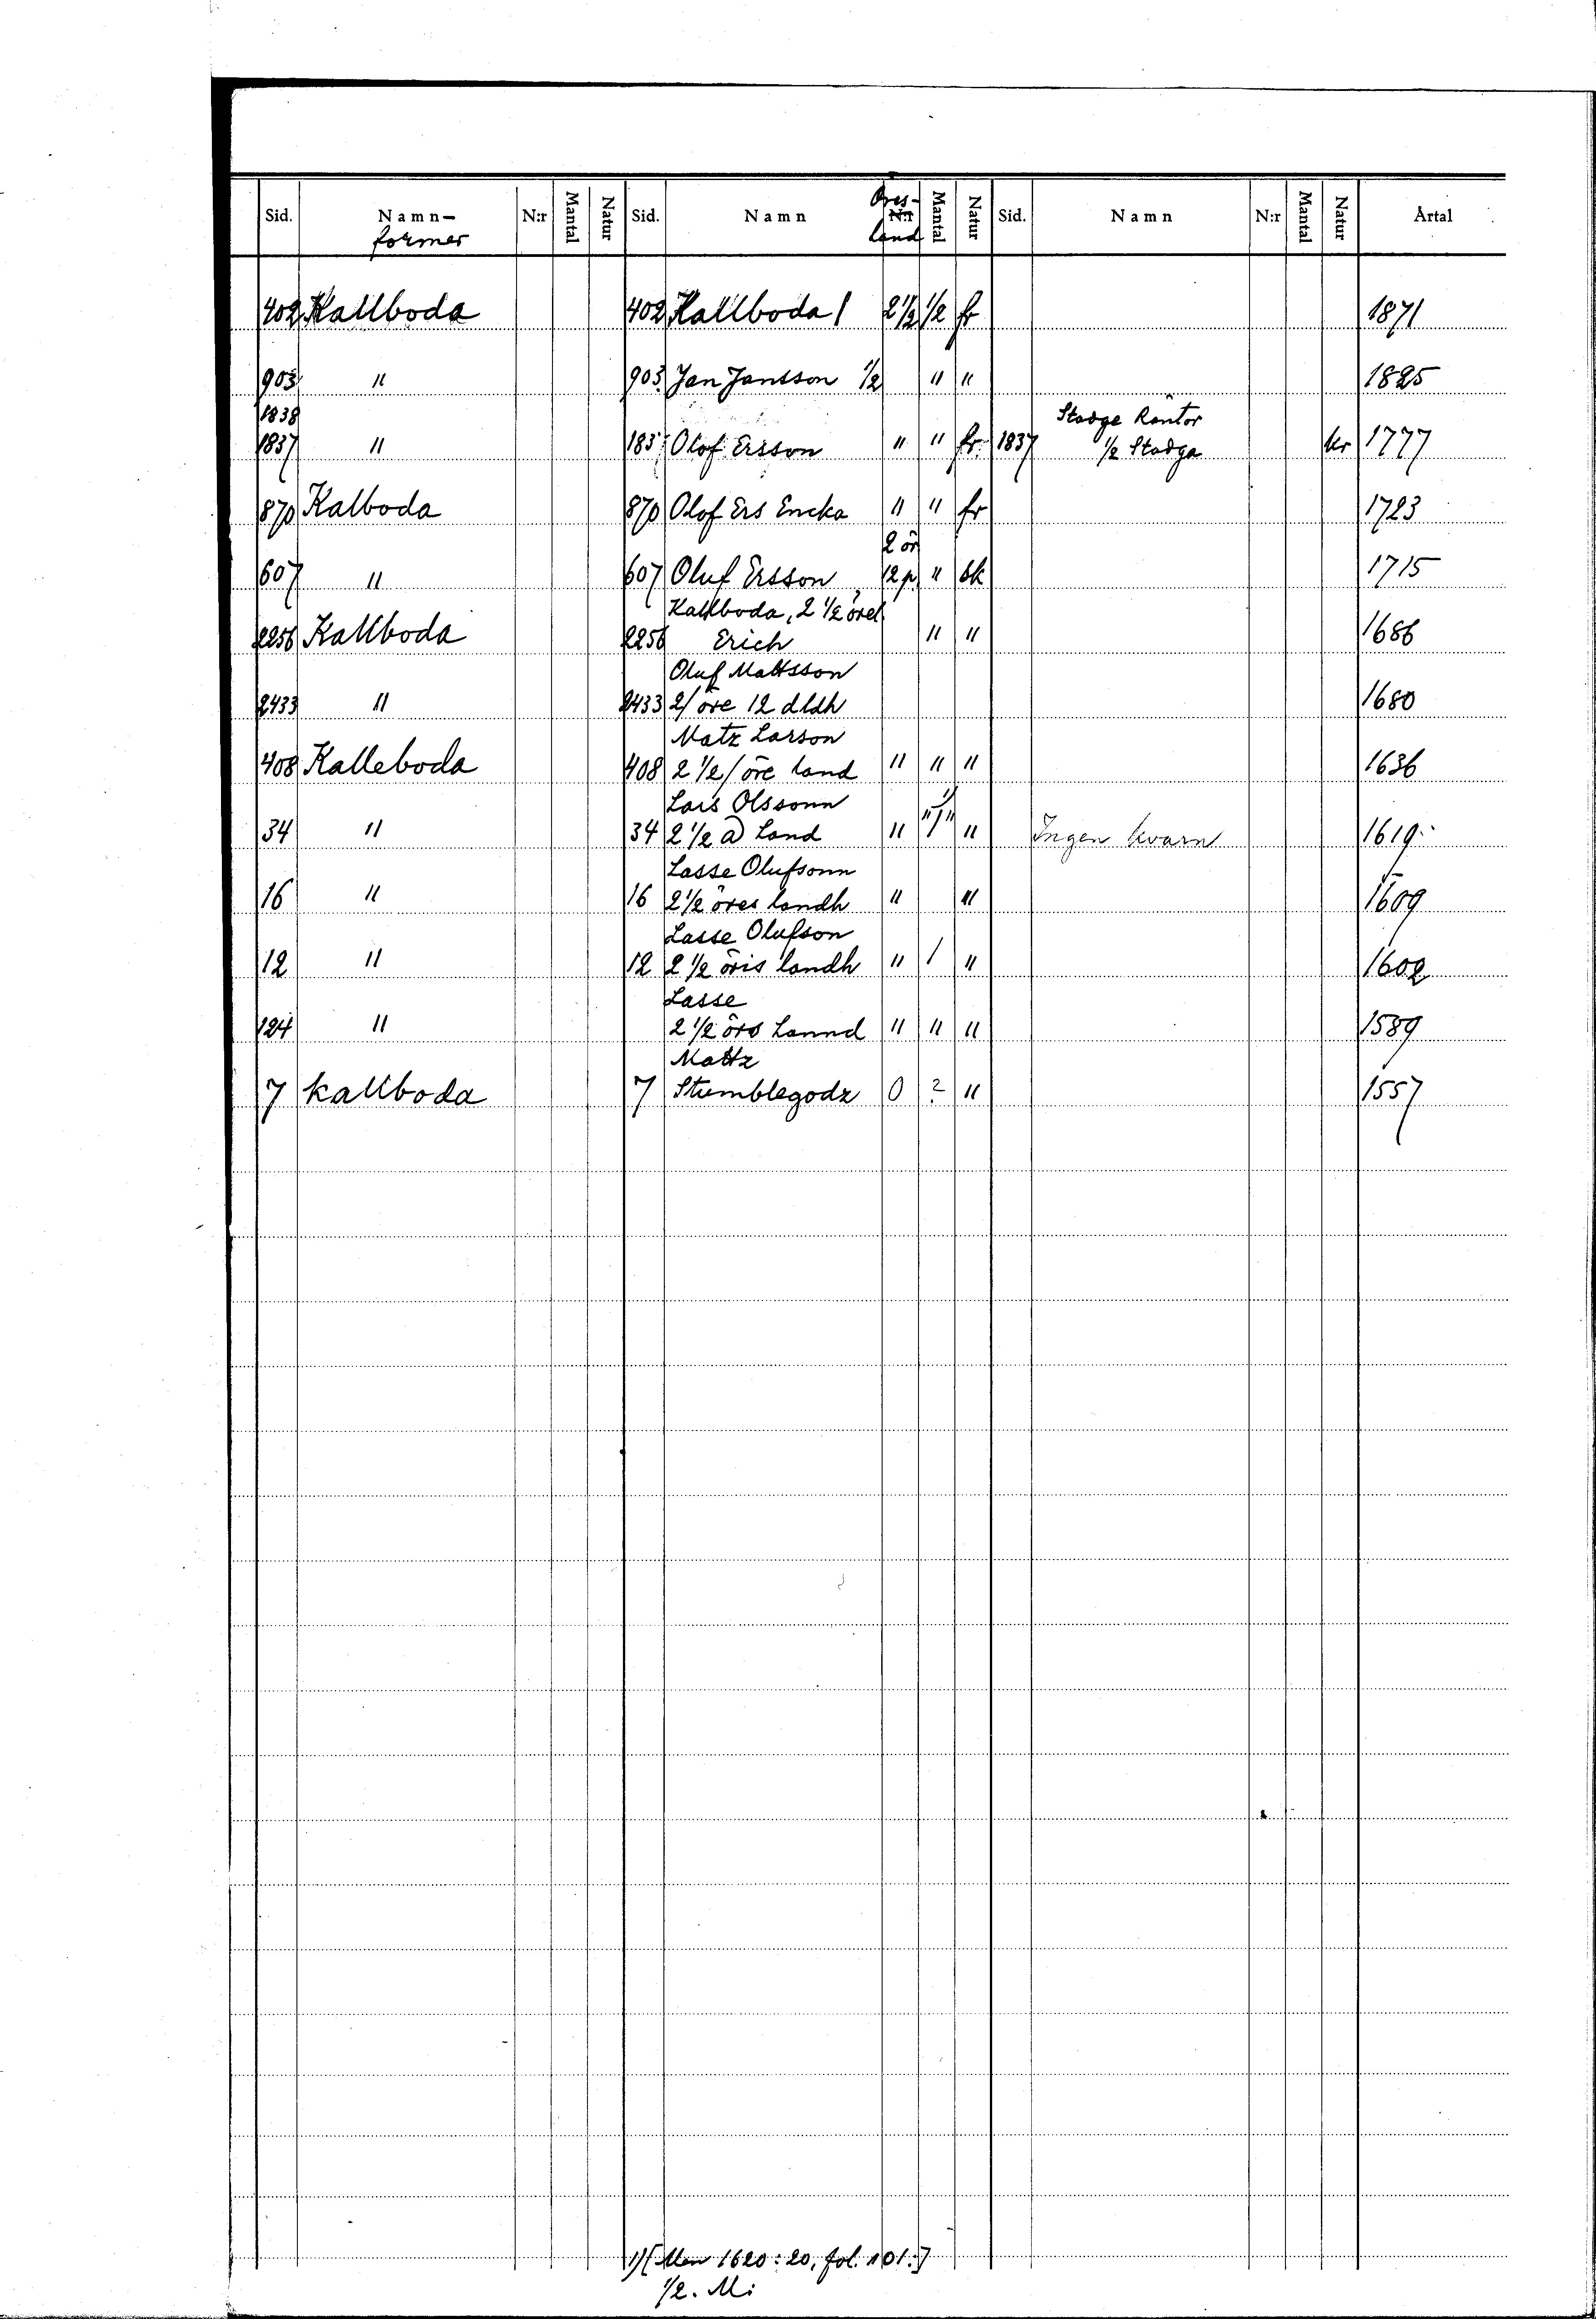 Sid. Namn- N:r Mantal Natur Sid. Namn Öres- N:r Mantal Natur Sid. Namn N:r Mantal Natur Årtal
former land
402 Kallboda 402 Kallboda 1 2 1/2 1/2 fr 1871
903 " 903 Jan Jansson 1/2 " " 1825
1838 Stadge Räntor
1837 " 1837 Olof Ersson " " fr. 1837 1/2 Stadga kr 1777
870 Kalboda 870 Olof Ers Encka " " fr 1723
2 ör
607 " 607 Oluf Ersson 12 p. " sk 1715
Kallboda, 2 1/2 örel
2256 Kallboda 2256 Erich " " 1686
Oluf Mattsson
2433 " 2433 2/ öre 12 dldh 1680
Matz Larson
408 Kalleboda 408 2 1/2/ öre land " " " 1636
Lars Olssonn 1)
34 " 34 2 1/2 a) Land " "/" " Ingen kvarn 1619
Lasse Olufsonn
16 " 16 2 1/2 öres landh " " 1609
Lasse Olufson
12 " 12 2 1/2 öris landh " 1 " 1602
Lasse
124 " 2 1/2 örs Lannd " " " 1589
Mattz
7 kallboda 7 Stumblegodz 0 ? " 1557
1) [Men 1620: 20, fol. 101:]
1/2. M: